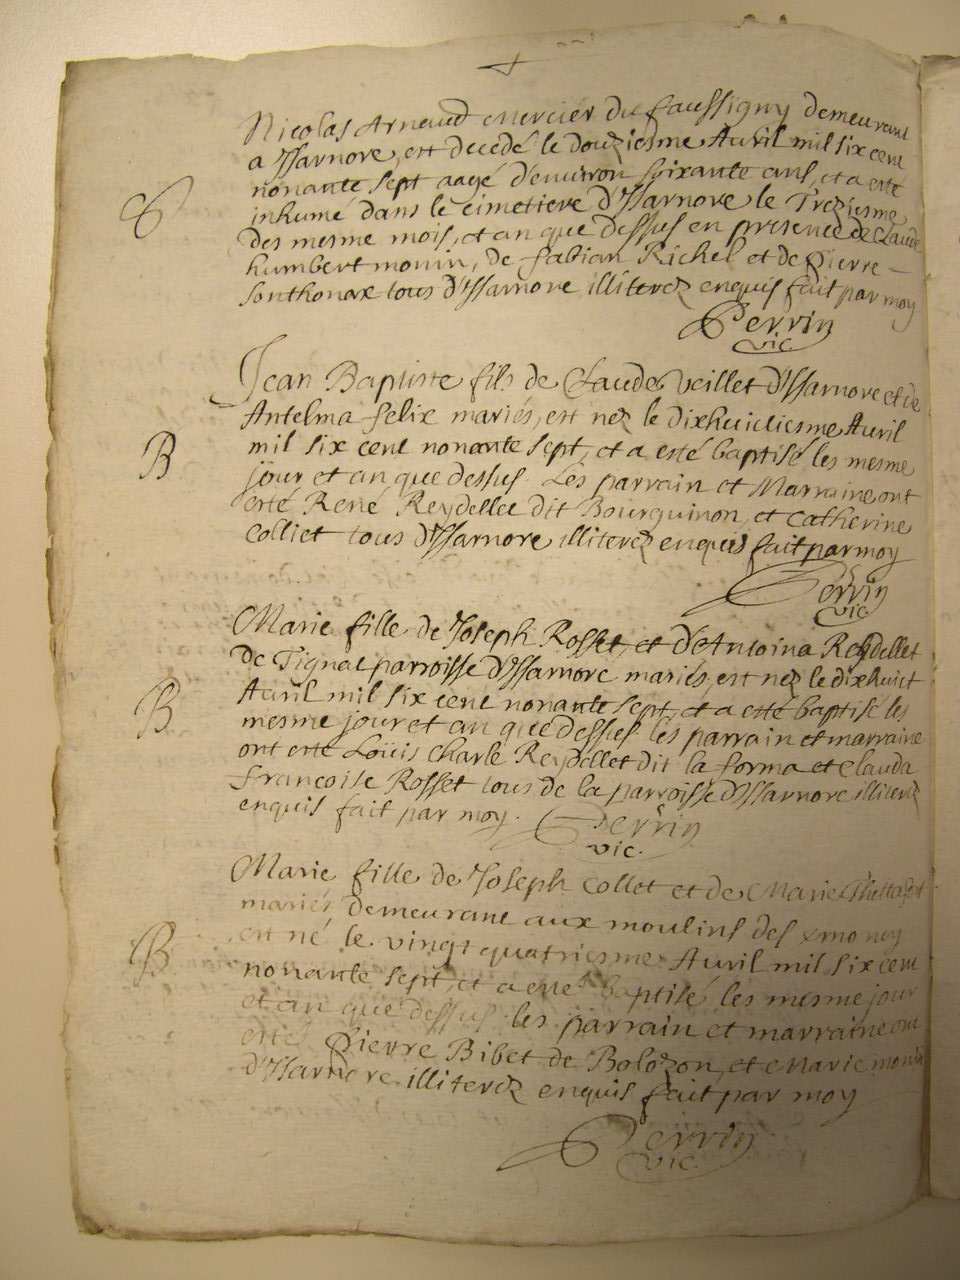 Nicolas Arnaud mercier du faussigny demeurant
a Jssarnore, est decedé le douziesme Auril mil six cent
nonante sept aagé d'enuiron soixante ans, et a esté
S
inhumé dans le cimetiere d'Jssarnore le Treziesme
des mesme mois, et an que dessus en presence de Claude
humbert monin, de fabian Richel et de pierre
sonthonax tous d'Jssarnore illiterez enquis fait par moy
Perrin
vic.
Jean Baptiste fils de Claude veillet d'Jssarnore et de
Antelma felix mariés, est nez le dixhuictiesme Auril
mil six cent nonante sept, et a esté baptisé les mesme
B
jour et an que dessus. Les parrain et Marraine ont
esté René Reydellet dit Bourguinon, et Catherine
Colliet tous d'Jssarnore illiterez enquis fait par moy
Perrin
vic.
Marie fille de Joseph Rosset, et d'Antoina Reydellet
de Tignat parroisse d'Jssarnore mariés, est nez le dixhuict
Auril mil six cent nonante sept, et a esté baptisé les
B
mesme jour et an que dessus les parrain et marraine
ont esté Loüis Charle Reydellet dit la forma et Clauda
francoise Rosset tous de la parroisse d'Jssarnore illiterez
enquis fait par moy. Perrin
vic.
Marie fille de Joseph Collet et de Marie
mariés demeurant aux moulins des
est né le vingt quatriesme Auril mil six cent
B
nonante sept, et a esté baptisé les mesme jour
et an que dessus. les parrain et marraine ont
estés pierre Bibet de Bolozon, et Marie monin
d'Jssarnore illiterez enquis fait par moy
Perrin
vic.